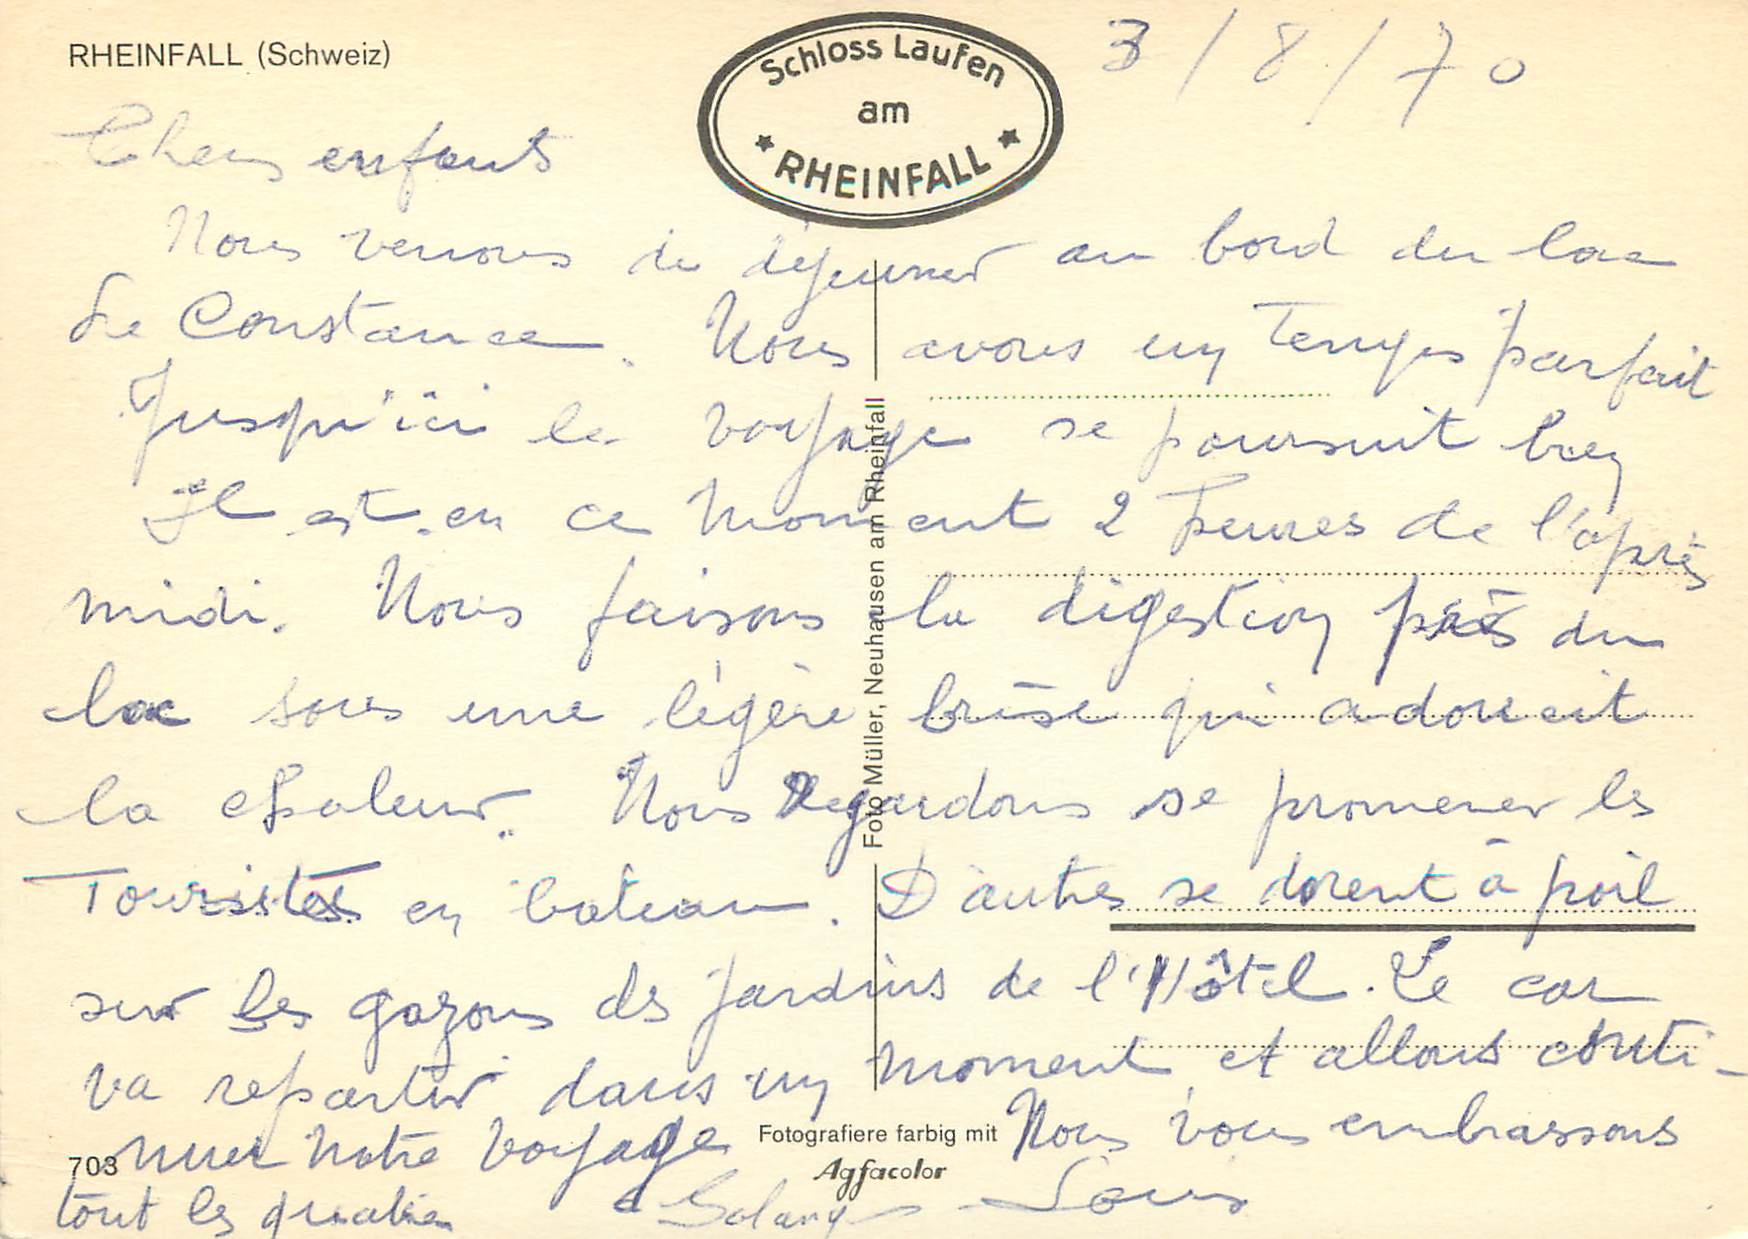 RHEINFALL (Schweiz)
Schloss Laufen
am
RHEINFALL
3/8/70
Chers enfants
Nous venons de déjeuner au bord du lac
de Constance. Nous avons un temps parfait
Jusqu'ici le voyage se poursuit bien
Il est en ce moment 2 heures de l'après
midi. Nous faisons la digestion près du
lac sous une légère brise qui adoucit
la chaleur. Nous regardons se promener les
Touristes en bateau. D'autres se dorent à poil
sur les gazons des jardins de l'Hôtel. Le car
va repartir dans un moment et allons conti-
nuer notre voyage Nous vous embrassons
tout les quatre Solange Louis
Foto Müller, Neuhausen am Rheinfall
Fotografiere farbig mit
Agfacolor
703